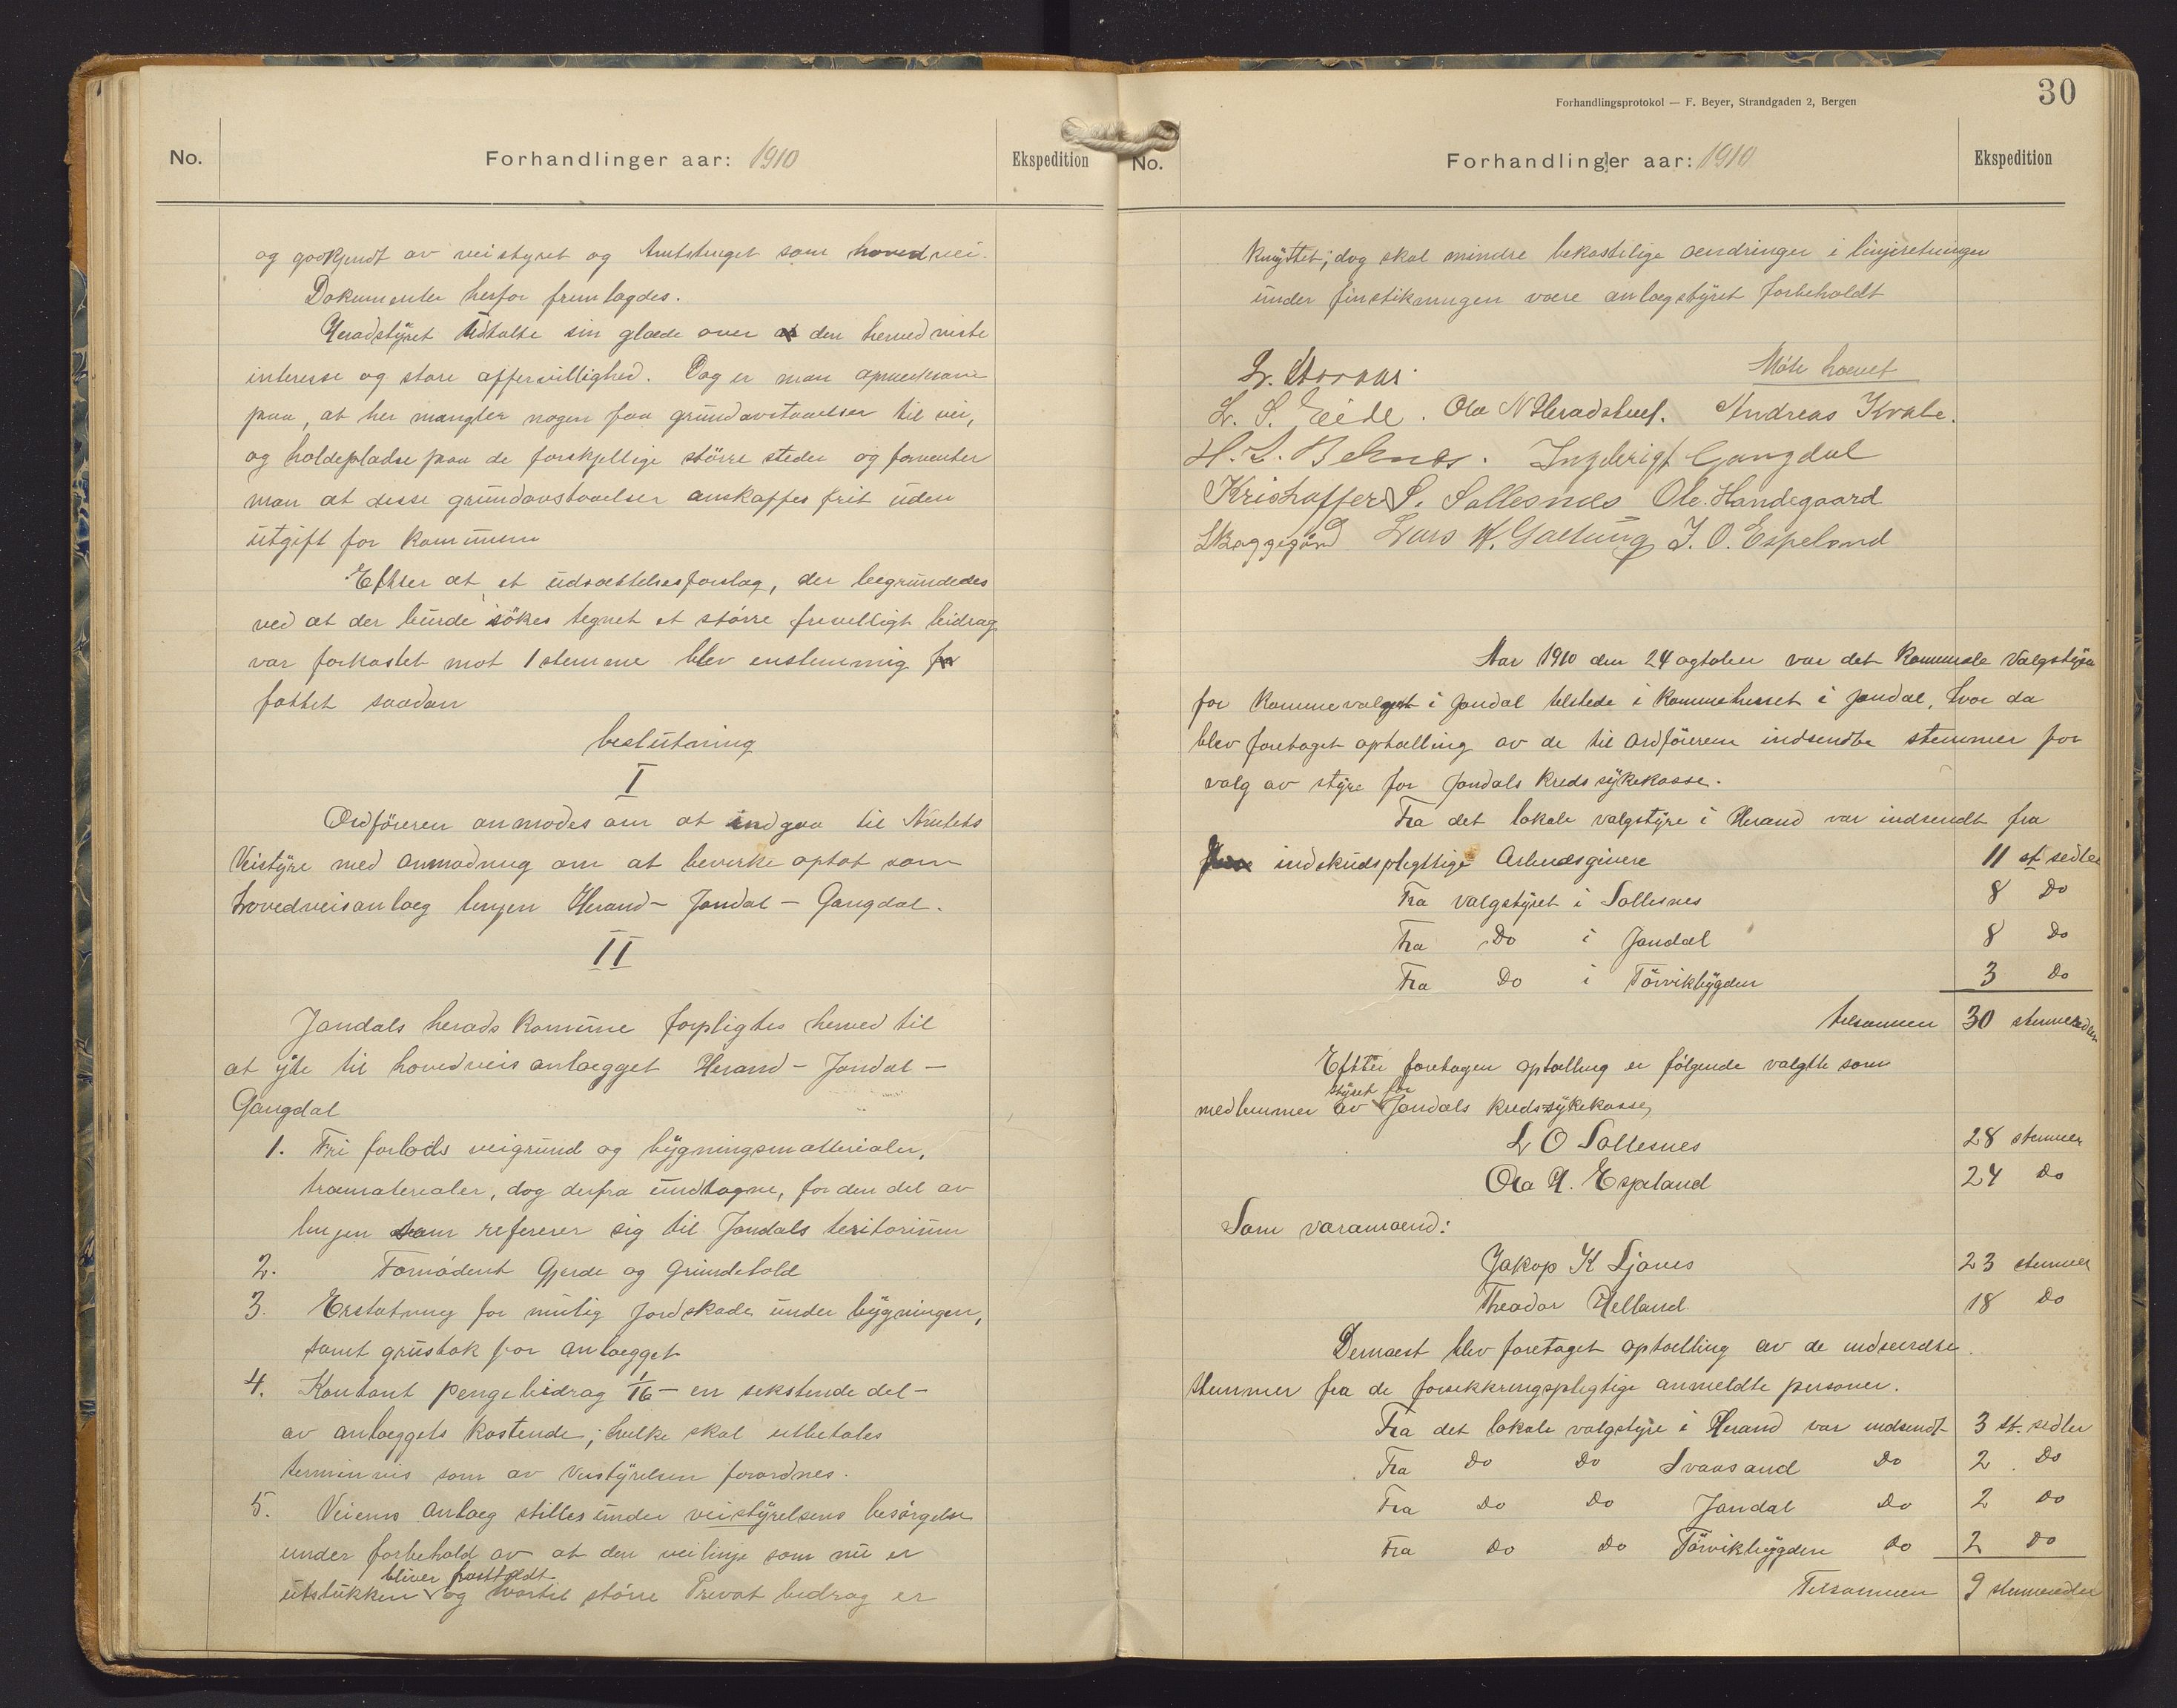 No.
Forhandlinger aar: 1910
Ekspedition
og godkjendt av veistyret og Amtstinget som hovedvei.
Dokumenter herfor fremlagdes.
Heradstyret udtalte sin glæde over den herved viste
interesse og store offervillighed. Dog er man opmerksom
paa, at her mangler nogen faa grundavstaaelser til vei,
og holdepladse paa de forskjellige större steder og forventer
man at disse grundavstaaelser anskaffes frit uden
utgift for kommunen
Efter at et udsættelsesforslag, der begrundedes
ved at der burde sökes tegnet et större frivilligt bidrag
var forkastet mot 1 stemme blev enstemmig
fattet saadan
beslutning
I
Ordföreren anmodes om at indgaa til Amtets
Veistyre med anmodning om at bevirke optat som
hovedveisanlæg linjen Herand - Jondal - Gangdal.
II
Jondals herads komune forpligtes herved til
at yde til hovedveisanlægget Herand - Jondal -
Gangdal
1. Fri forlods veigrund og bygningsmatterialer,
træmaterialer, dog derfra undtagne, for den del av
linjen som referer sig til Jondals teritorium
2. Fornödent Gjerde og Grindehold
3. Erstatning for mulig jordskade under bygningen,
samt grustak for anlægget
4. Kontant pengebidrag 1/16 - en sekstende del -
av anlæggets kostende; hvilke skal utbetales
terminvis som av Veistyrelsen forordnes.
5. Veiens anlæg stilles under veistyrelsens besörgelse
under forbehold av at den veilinje som nu er
utstukken bliver fastholdt og hvortil större Privat bidrag er
30
Forhandlingsprotokol — F. Beyer, Strandgaden 2, Bergen
No.
Forhandlinger aar: 1910
Ekspedition
knyttet; dog skal mindre bekostelige ændringer i linjeretningen
under finstikningen være anlægstyret forbeholdt
Möte hævet
L. S. Eide. Ola N Heradstveit. Andreas Kvale.
Ingebrigt Gangdal
Kristoffer S. Sollesnes Ole Handegaard
Lars K. Galtung J. O. Espeland
Aar 1910 den 24 ogtober var det komunale Valgstyre
for komunevalget i Jondal tilstede i komunehuset i Jondal, hvor da
blev foretaget optælling av de til ordföreren indsendte stemmer for
valg av styre for Jondals kreds sykekasse.
Fra det lokale valgstyre i Herand var indsendt fra
indskudspligtige Arbeidsgivere 11 st sedler
Fra valgstyret i Sollesnes 8 Do
Fra Do i Jondal 8 Do
Fra Do i Törvikbygden 3 Do
tilsammen 30 stemmesedler
Efter foretagen optælling er fölgende valgte som
medlemmer av styret for Jondals kreds-sykekasse,
L O Sollesnes 28 stemmer
Ola H. Espeland 24 Do
Som varamænd:
Jakop K Sjoves 23 stemmer
Theodor Helland 18 Do
Dernæst blev foretaget optælling av de indsendte
stemmer fra de forsikkringspligtige anmeldte personer.
Fra det lokale valgstyre i Herand var indsendt 3 st. sedler
Fra Do Do Svaasand Do 2 Do
Fra Do Do Jondal Do 2 Do
Fra Do Do Törvikbygden Do 2 Do
Tilsammen 9 stemmesedler